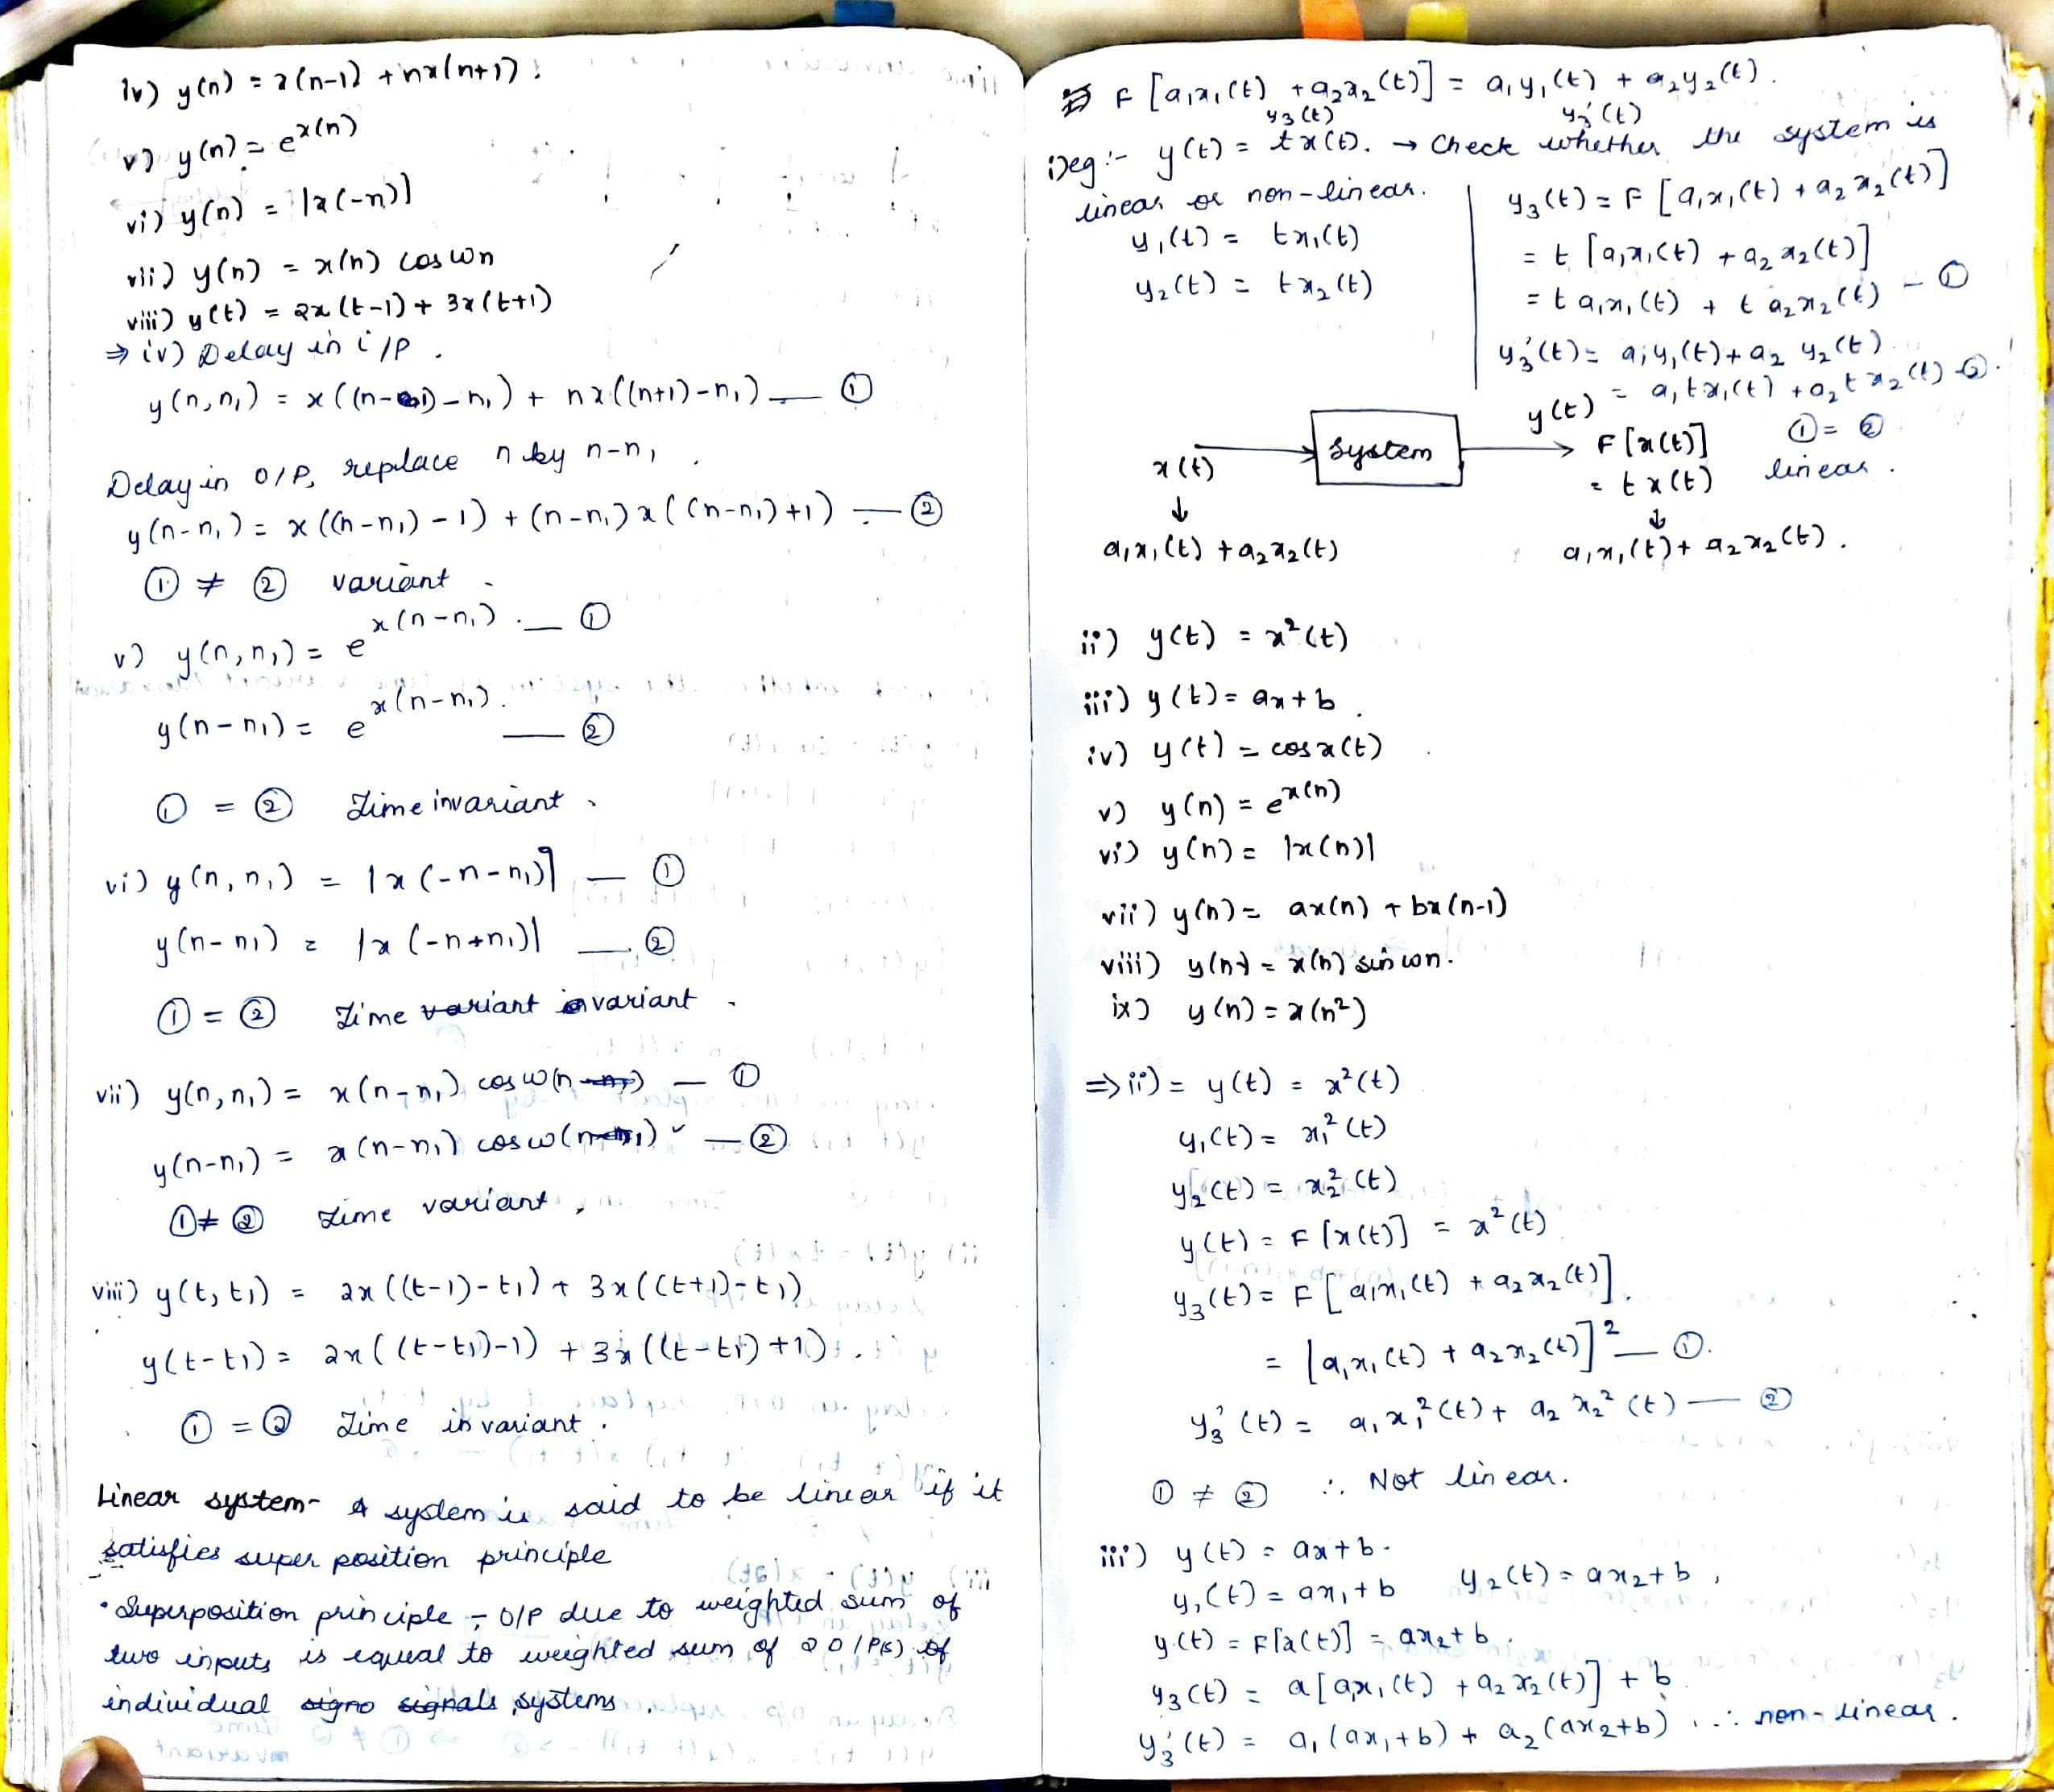 iv) y(n) = x(n-1) + nx(n+1).
v) y(n) = e^x(n)
vi) y(n) = |x(-n)|
vii) y(n) = x(n) cos ωn
viii) y(t) = 2x(t-1) + 3x(t+1)
⇒ iv) Delay in i/p.
y(n,n₁) = x((n-1)-n₁) + nx((n+1)-n₁) — ①
Delay in O/P, replace n by n-n₁.
y(n-n₁) = x((n-n₁)-1) + (n-n₁)x((n-n₁)+1) — ②
① ≠ ② variant
v) y(n,n₁) = e^x(n-n₁). — ①
y(n-n₁) = e^x(n-n₁). — ②
① = ② Time invariant.
vi) y(n,n₁) = |x(-n-n₁)| — ①
y(n-n₁) = |x(-n+n₁)| — ②
① = ② Time variant invariant.
vii) y(n,n₁) = x(n-n₁) cos ω(n-n₁) — ①
y(n-n₁) = x(n-n₁) cos ω(n-n₁) — ②
① ≠ ② Time variant,
viii) y(t,t₁) = 2x((t-1)-t₁) + 3x((t+1)-t₁)
y(t-t₁) = 2x((t-t₁)-1) + 3x((t-t₁)+1).
① = ② Time invariant.
Linear system- A system is said to be linear if it
satisfies super position principle
• Superposition principle - O/P due to weighted sum of
two inputs is equal to weighted sum of 2 O/P(s) of
individual signo signals systems.
F[a₁x₁(t) + a₂x₂(t)] = a₁y₁(t) + a₂y₂(t).
y₃(t) y₃'(t)
i) eg:- y(t) = tx(t). → Check whether the system is
linear or non-linear.
y₁(t) = tx₁(t)
y₂(t) = tx₂(t)
y₃(t) = F[a₁x₁(t) + a₂x₂(t)]
= t[a₁x₁(t) + a₂x₂(t)]
= ta₁x₁(t) + ta₂x₂(t) - ①
y₃'(t) = a₁y₁(t) + a₂y₂(t)
= a₁tx₁(t) + a₂tx₂(t) - ②.
x(t) system y(t) F[x(t)] ① = ②
= tx(t) linear.
↓ ↓
a₁x₁(t) + a₂x₂(t) a₁x₁(t) + a₂x₂(t).
ii) y(t) = x²(t)
iii) y(t) = ax + b.
iv) y(t) = cos x(t)
v) y(n) = e^x(n)
vi) y(n) = |x(n)|
vii) y(n) = ax(n) + bx(n-1)
viii) y(n) = x(n) sin ωn.
ix) y(n) = x(n²)
⇒ ii) = y(t) = x²(t)
y₁(t) = x₁²(t)
y₂(t) = x₂²(t)
y(t) = F[x(t)] = x²(t)
y₃(t) = F[a₁x₁(t) + a₂x₂(t)].
= [a₁x₁(t) + a₂x₂(t)]² — ①.
y₃'(t) = a₁x₁²(t) + a₂x₂²(t) — ②
① ≠ ② ∴ Not linear.
iii) y(t) = ax + b.
y₁(t) = ax₁ + b y₂(t) = ax₂ + b,
y(t) = F[x(t)] = ax₂ + b.
y₃(t) = a[a₁x₁(t) + a₂x₂(t)] + b
y₃'(t) = a₁(ax₁+b) + a₂(ax₂+b) ∴ non-linear.